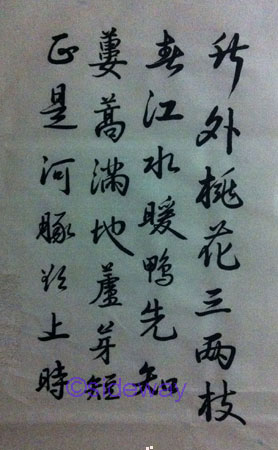 竹外桃花三两枝
春江水暖鴨先知
蔞蒿滿地蘆芽短
正是河豚欲上時
©sideway